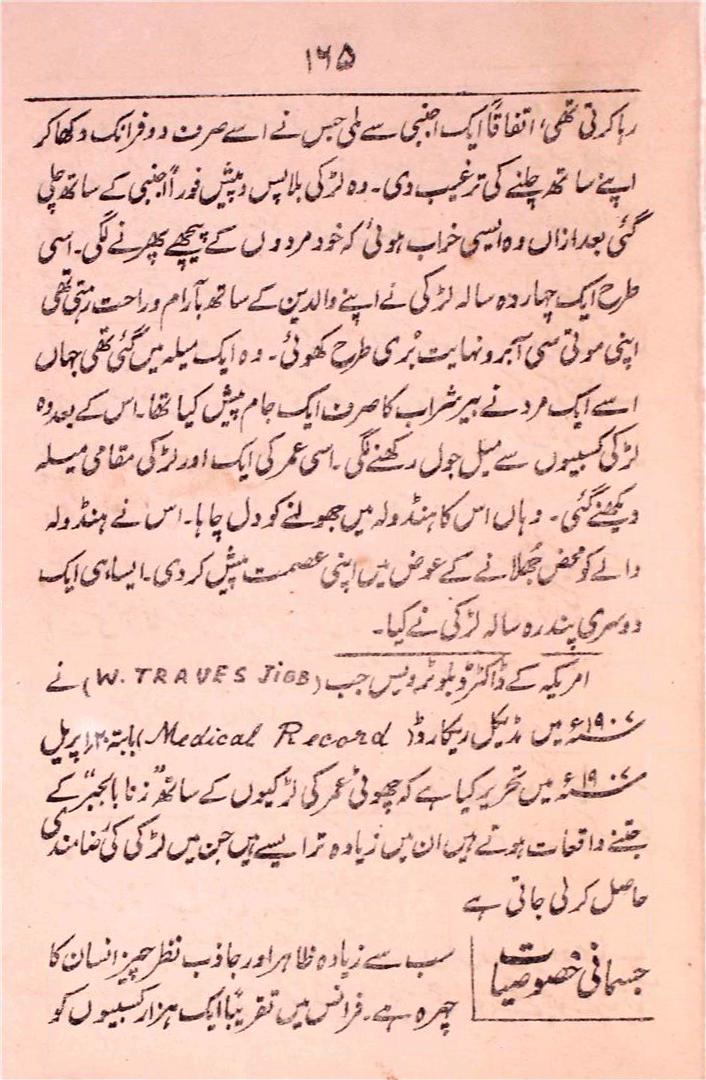 ۱۶۵
رہا کرتی تھی، اتفاقاً ایک اجنبی سے ملی جس نے اسے صرف دو فرانک دکھا کر
اپنے ساتھ چلنے کی ترغیب دی۔ وہ لڑکی بلا پس و پیش فوراً اجنبی کے ساتھ چلی
گئی بعد ازاں وہ ایسی خراب ہوئی کہ خود مردوں کے پیچھے پھرنے لگی۔ اسی
طرح ایک چہار دہ سالہ لڑکی نے اپنے والدین کے ساتھ بآرام و راحت رہتی تھی
اپنی موتی سی آبرو نہایت بُری طرح کھوئی۔ وہ ایک میلہ میں گئی تھی جہاں
اسے ایک مرد نے بیر شراب کا صرف ایک جام پیش کیا تھا۔ اس کے بعد وہ
لڑکی کسبیوں سے میل جول رکھنے لگی۔ اسی عمر کی ایک اور لڑکی مقامی میلہ
دیکھنے گئی۔ وہاں اس کا ہنڈولہ میں جھولنے کو دل چاہا۔ اس نے ہنڈولہ
والے کو محض جُھلانے کے عوض میں اپنی عصمت پیش کر دی۔ ایسا ہی ایک
دوسری پندرہ سالہ لڑکی نے کیا۔
امریکہ کے ڈاکٹر ڈبلو ٹرویس جب (W. TRAVES JiBB) نے
۱۹۰۷ء میں مڈیکل ریکارڈ (Medical Record) بابتہ ۲۰ اپریل
۱۹۰۷ء میں تحریر کیا ہے کہ چھوٹی عمر کی لڑکیوں کے ساتھ "زنا بالجبر" کے
جتنے واقعات ہوتے ہیں ان میں زیادہ تر ایسے ہیں جن میں لڑکی کی رضامندی
حاصل کر لی جاتی ہے
جسمانی خصوصیات
سب سے زیادہ ظاہر اور جاذب نظر چیز انسان کا
چہرہ ہے۔ فرانس میں تقریباً ایک ہزار کسبیوں کو